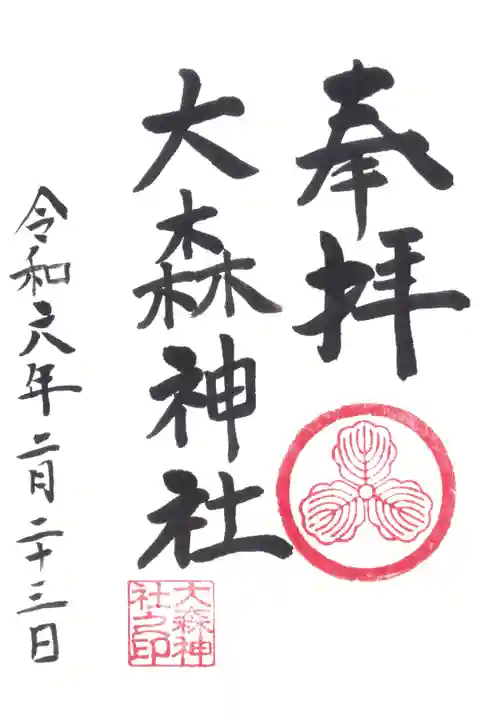 奉拝
大森神社
令和六年二月二十三日
大森神
社之印